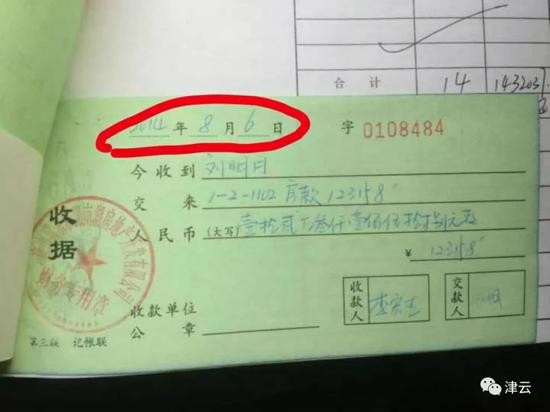 合 计 14 143203
2014 年 8 月 6 日 字 0108484
今收到 刘明月
交 来 1-2-1102 房款 123158
收据
人民币 (大写) 壹拾贰万叁仟壹佰伍拾捌元正
¥ 123158
财务专用章
收款单位
公 章
收款人
交款人
第三联 记帐联
津云